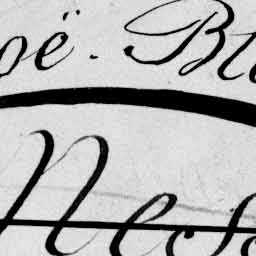 oë. Bl
Nes